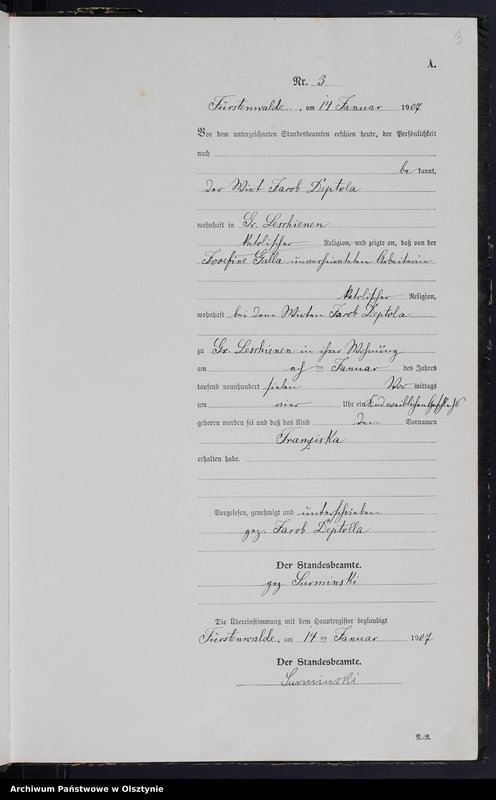 3
A.
Nr. 3
Fürstenwalde, am 14 Januar 1907
Vor dem unterzeichneten Standesbeamten erschien heute, der Persönlichkeit
nach
be kannt,
der Wirt Jacob Deptola
wohnhaft in Gr. Leschienen
katolischer Religion, und zeigte an, daß von der
Josefine Galla unverheirateten Arbeiterin
katolischer Religion,
wohnhaft bei dem Wirten Jacob Deptola
zu Gr. Leschienen in ihrer Wohnung
am ten Januar des Jahres
tausend neunhundert sieben Vor mittags
um vier Uhr ein Kind weiblichen Geschlechts
geboren worden sei und daß das Kind den Vornamen
Franziska
erhalten habe.
Vorgelesen, genehmigt und unterschrieben
gez. Jacob Deptolla
Der Standesbeamte.
gez. Surminski
Die Übereinstimmung mit dem Hauptregister beglaubigt
Fürstenwalde, am 14 ten Januar 1907
Der Standesbeamte.
Surminski
Archiwum Państwowe w Olsztynie